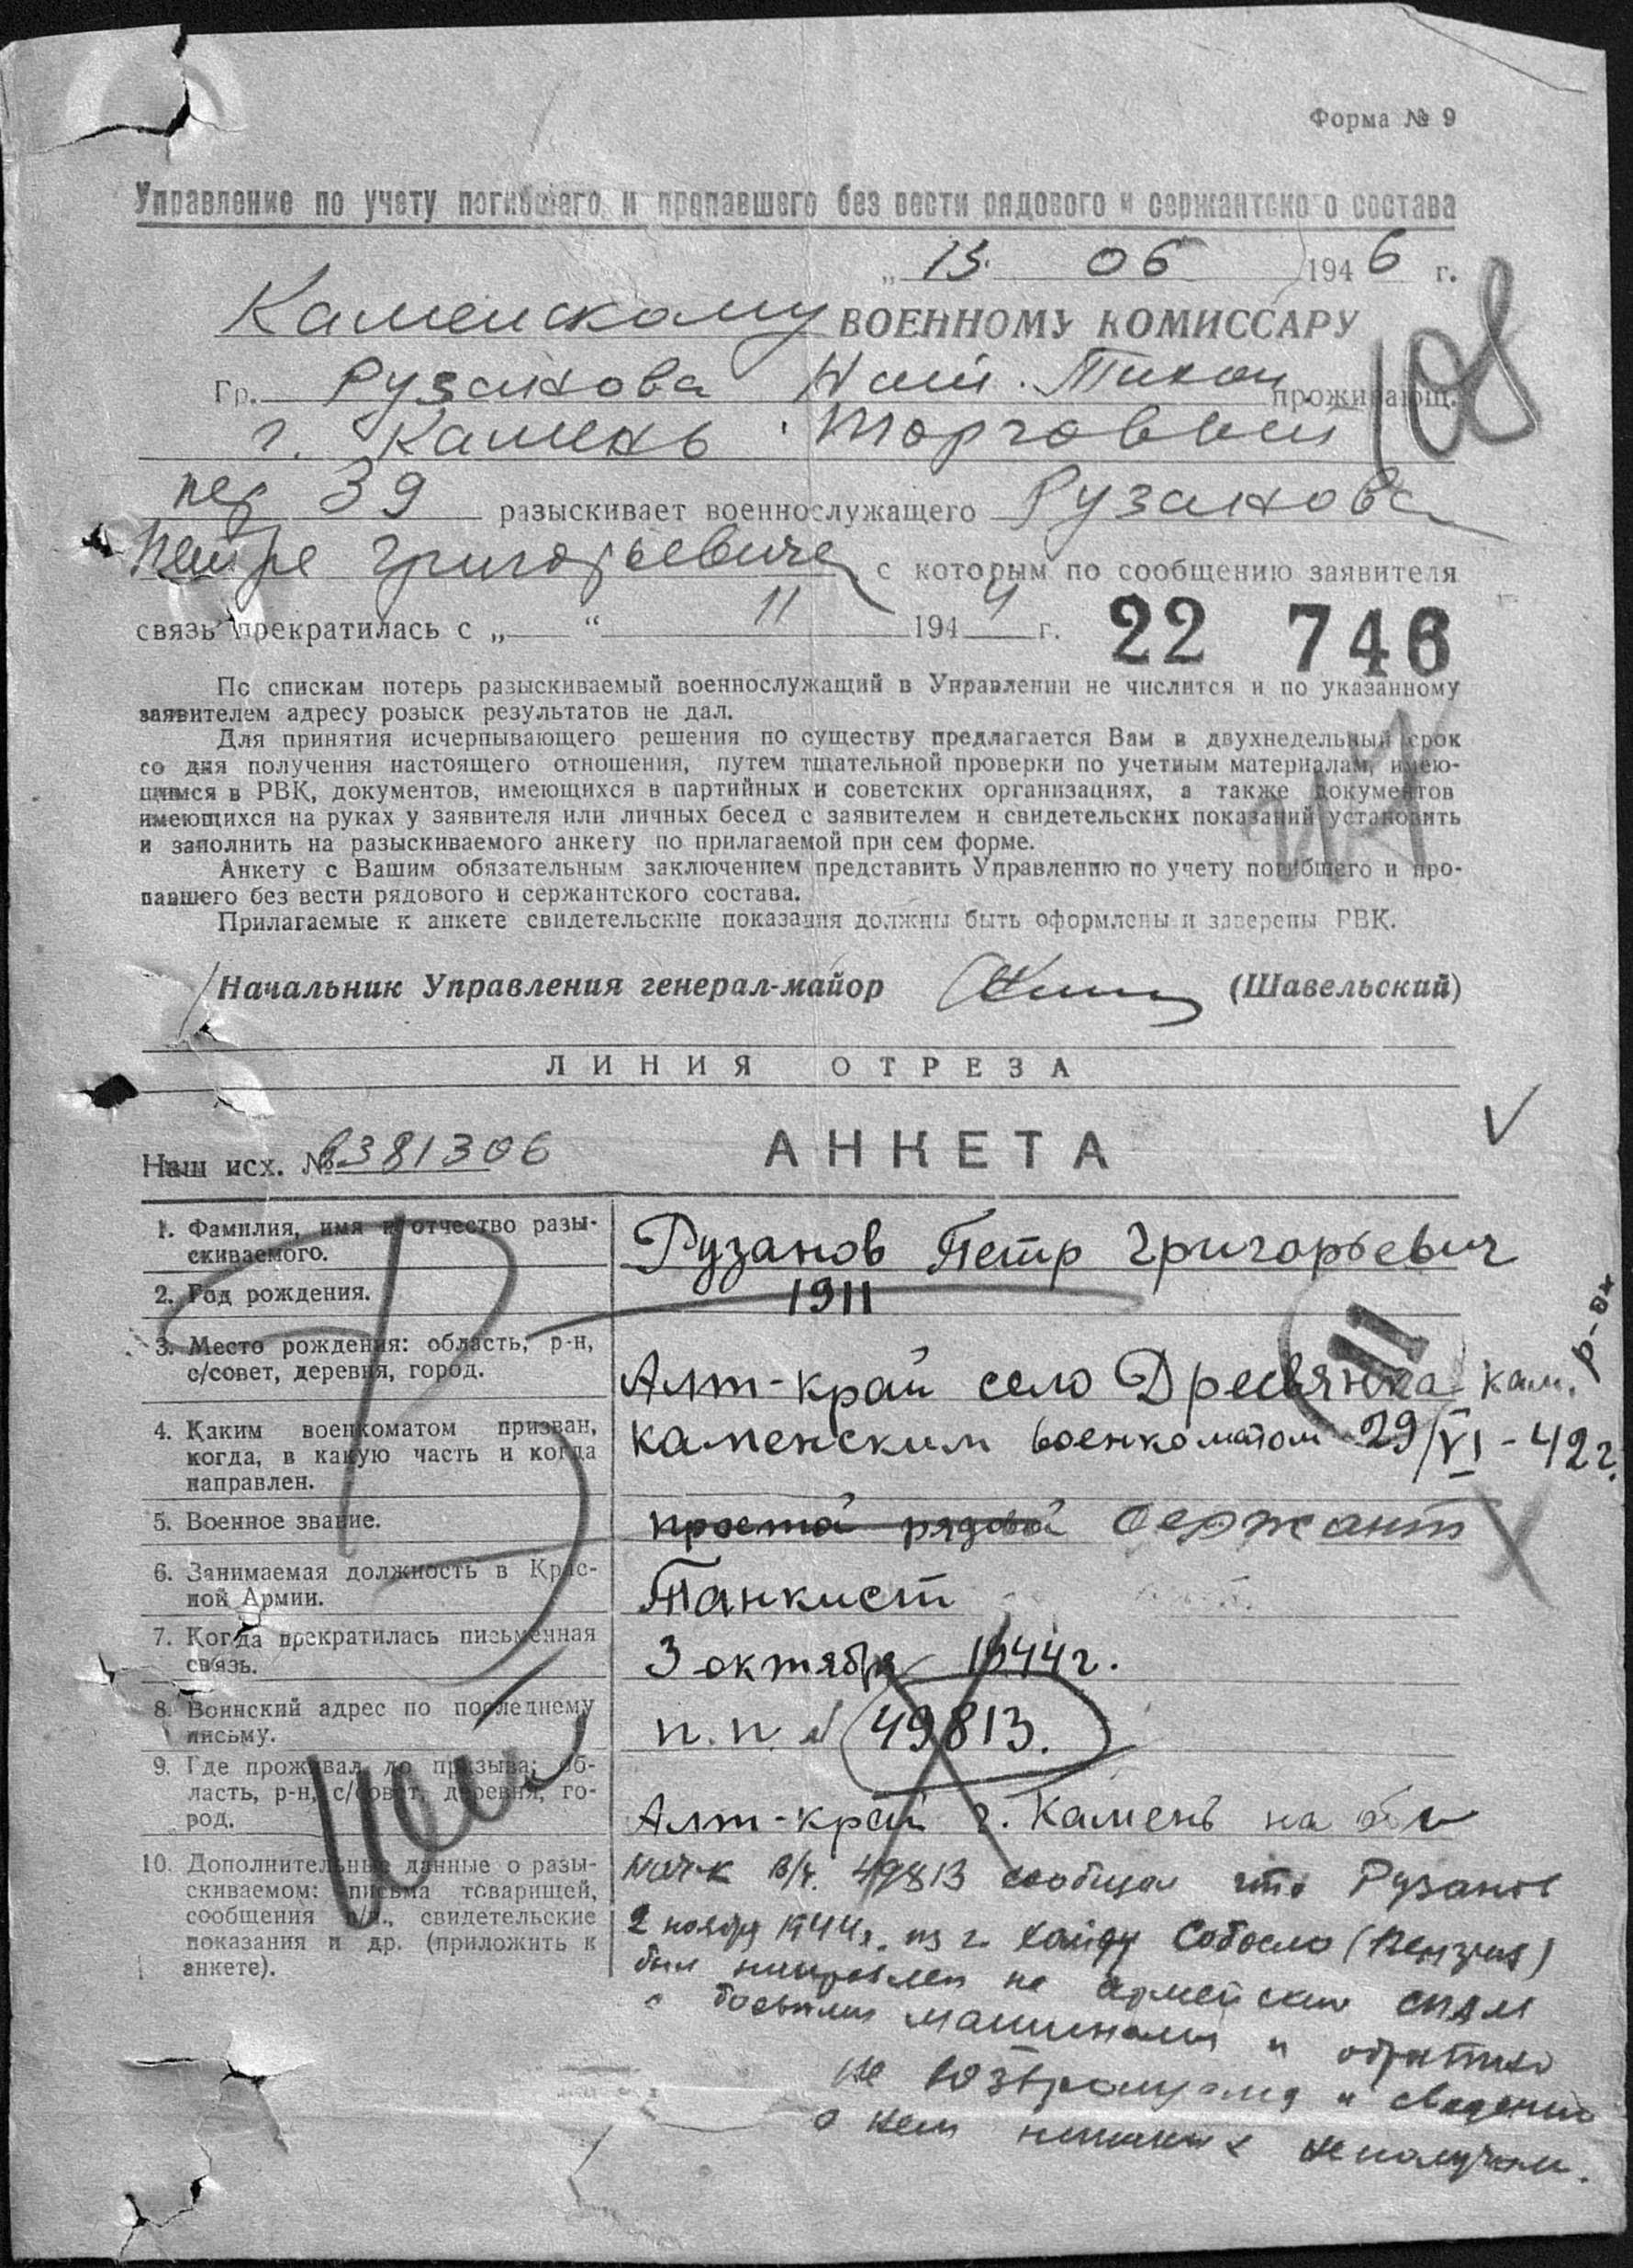 Форма № 9
Управление по учету погибшего и пропавшего без вести рядового и сержантского состава
„ 13. 06 1946 г.
Каменскому ВОЕННОМУ КОМИССАРУ
108
Гр. Рузанова Тихон проживающ.
г. Камень Торговый
пер 39 разыскивает военнослужащего Рузанова
Петра Григорьевича с которым по сообщению заявителя
связь прекратилась с „ “ 11 1944 г. 22 746
По спискам потерь разыскиваемый военнослужащий в Управлении не числится и по указанному
заявителем адресу розыск результатов не дал.
Для принятия исчерпывающего решения по существу предлагается Вам в двухнедельный срок
со дня получения настоящего отношения, путем тщательной проверки по учетным материалам, имею-
щимся в РВК, документов, имеющихся в партийных и советских организациях, а также документов
имеющихся на руках у заявителя или личных бесед с заявителем и свидетельских показаний установить
и заполнить на разыскиваемого анкету по прилагаемой при сем форме.
Анкету с Вашим обязательным заключением представить Управлению по учету погибшего и про-
павшего без вести рядового и сержантского состава.
Прилагаемые к анкете свидетельские показания должны быть оформлены и заверены РВК.
Начальник Управления генерал-майор (Шавельский)
ЛИНИЯ ОТРЕЗА
Наш исх. № 381306
АНКЕТА
1. Фамилия, имя и отчество разы-
скиваемого.
Рузанов Петр Григорьевич
2. Год рождения.
1911
3. Место рождения: область, р-н,
с/совет, деревня, город.
Алт-край село Дресвянка кам. р-он
4. Каким военкоматом призван,
когда, в какую часть и когда
направлен.
каменским военкоматом 29/VI-42г.
5. Военное звание.
простой рядовой сержант
6. Занимаемая должность в Крас-
ной Армии.
Танкист
7. Когда прекратилась письменная
связь.
3 октября 1944г.
8. Воинский адрес по последнему
письму.
п.п. № 49813.
9. Где проживал до призыва: об-
ласть, р-н, с/совет, деревня, го-
род.
Алт-край г. Камень на оби
10. Дополнительные данные о разы-
скиваемом: письма товарищей,
сообщения в/ч., свидетельские
показания и др. (приложить к
анкете).
нач-к в/ч. 49813 сообщил что Рузанов
2 ноября 1944г. из г. Собосло
был направлен на армейский СПАМ
с боевыми машинами и обратно
не возвращался и сведений
о нем никаких не получали.